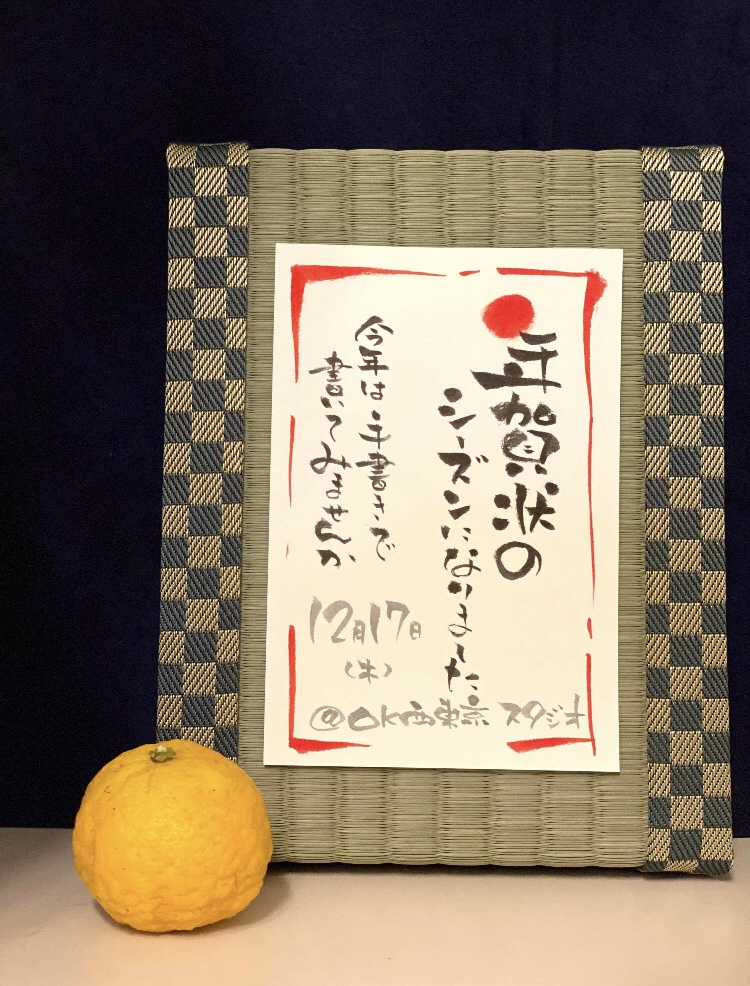 年賀状の
シーズンになりました。
今年は手書きで
書いてみませんか
12月17日
(木)
@OK西東京スタジオ